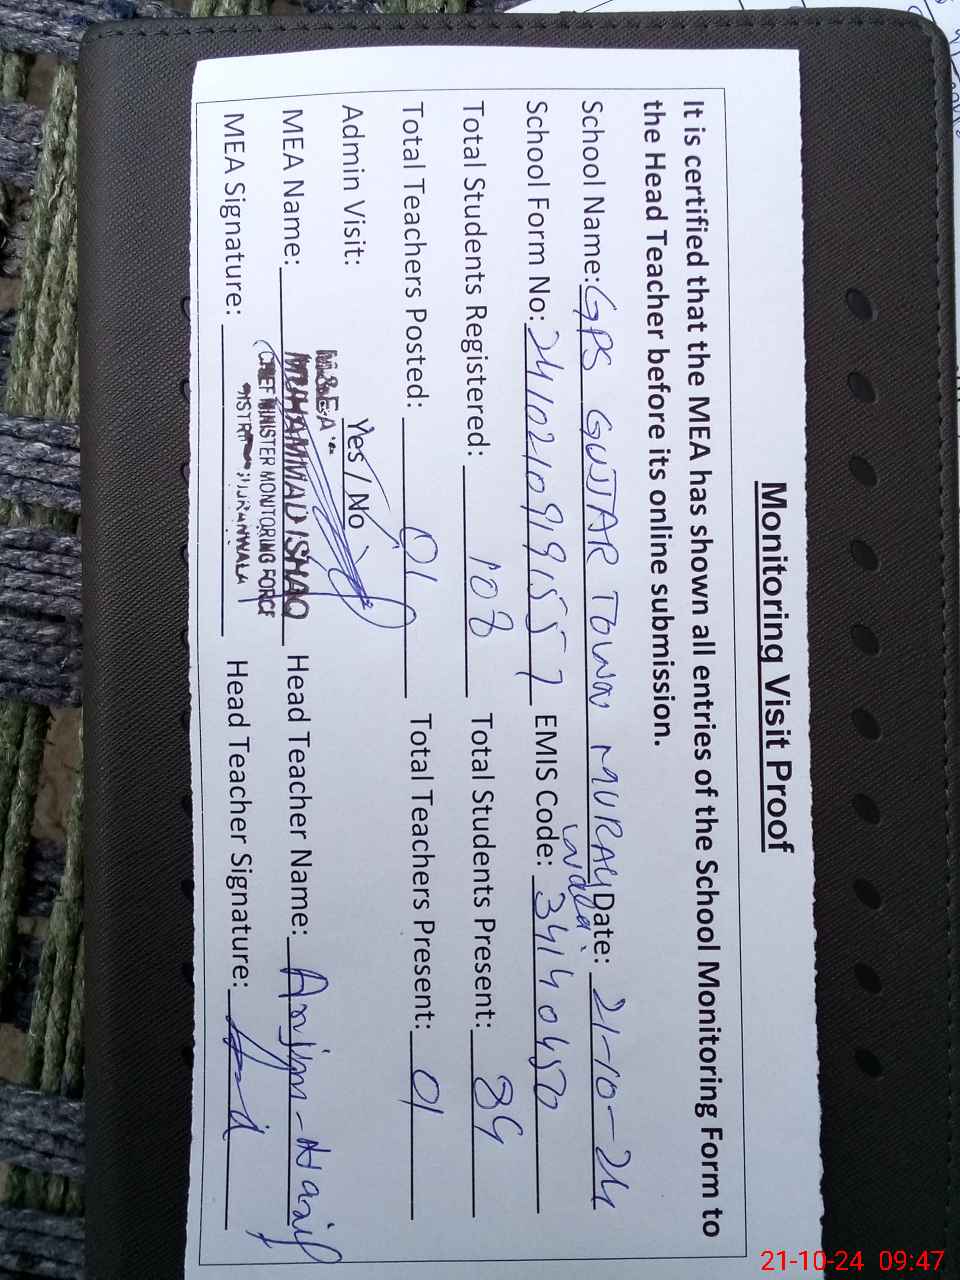 Monitoring Visit Proof
It is certified that the MEA has shown all entries of the School Monitoring Form to
the Head Teacher before its online submission.
School Name: GPS GUJJAR TOWN MURALI Date: 21-10-24
wala
School Form No: 2410210991557 EMIS Code: 34140450
Total Students Registered: 108 Total Students Present: 89
Total Teachers Posted: 01 Total Teachers Present: 01
Admin Visit: Yes / No
M&EA
MEA Name: MUHAMMAD ISHAQ Head Teacher Name: Anjum-Hanif
CHIEF MINISTER MONITORING FORCE
MEA Signature: Head Teacher Signature:
21-10-24 09:47